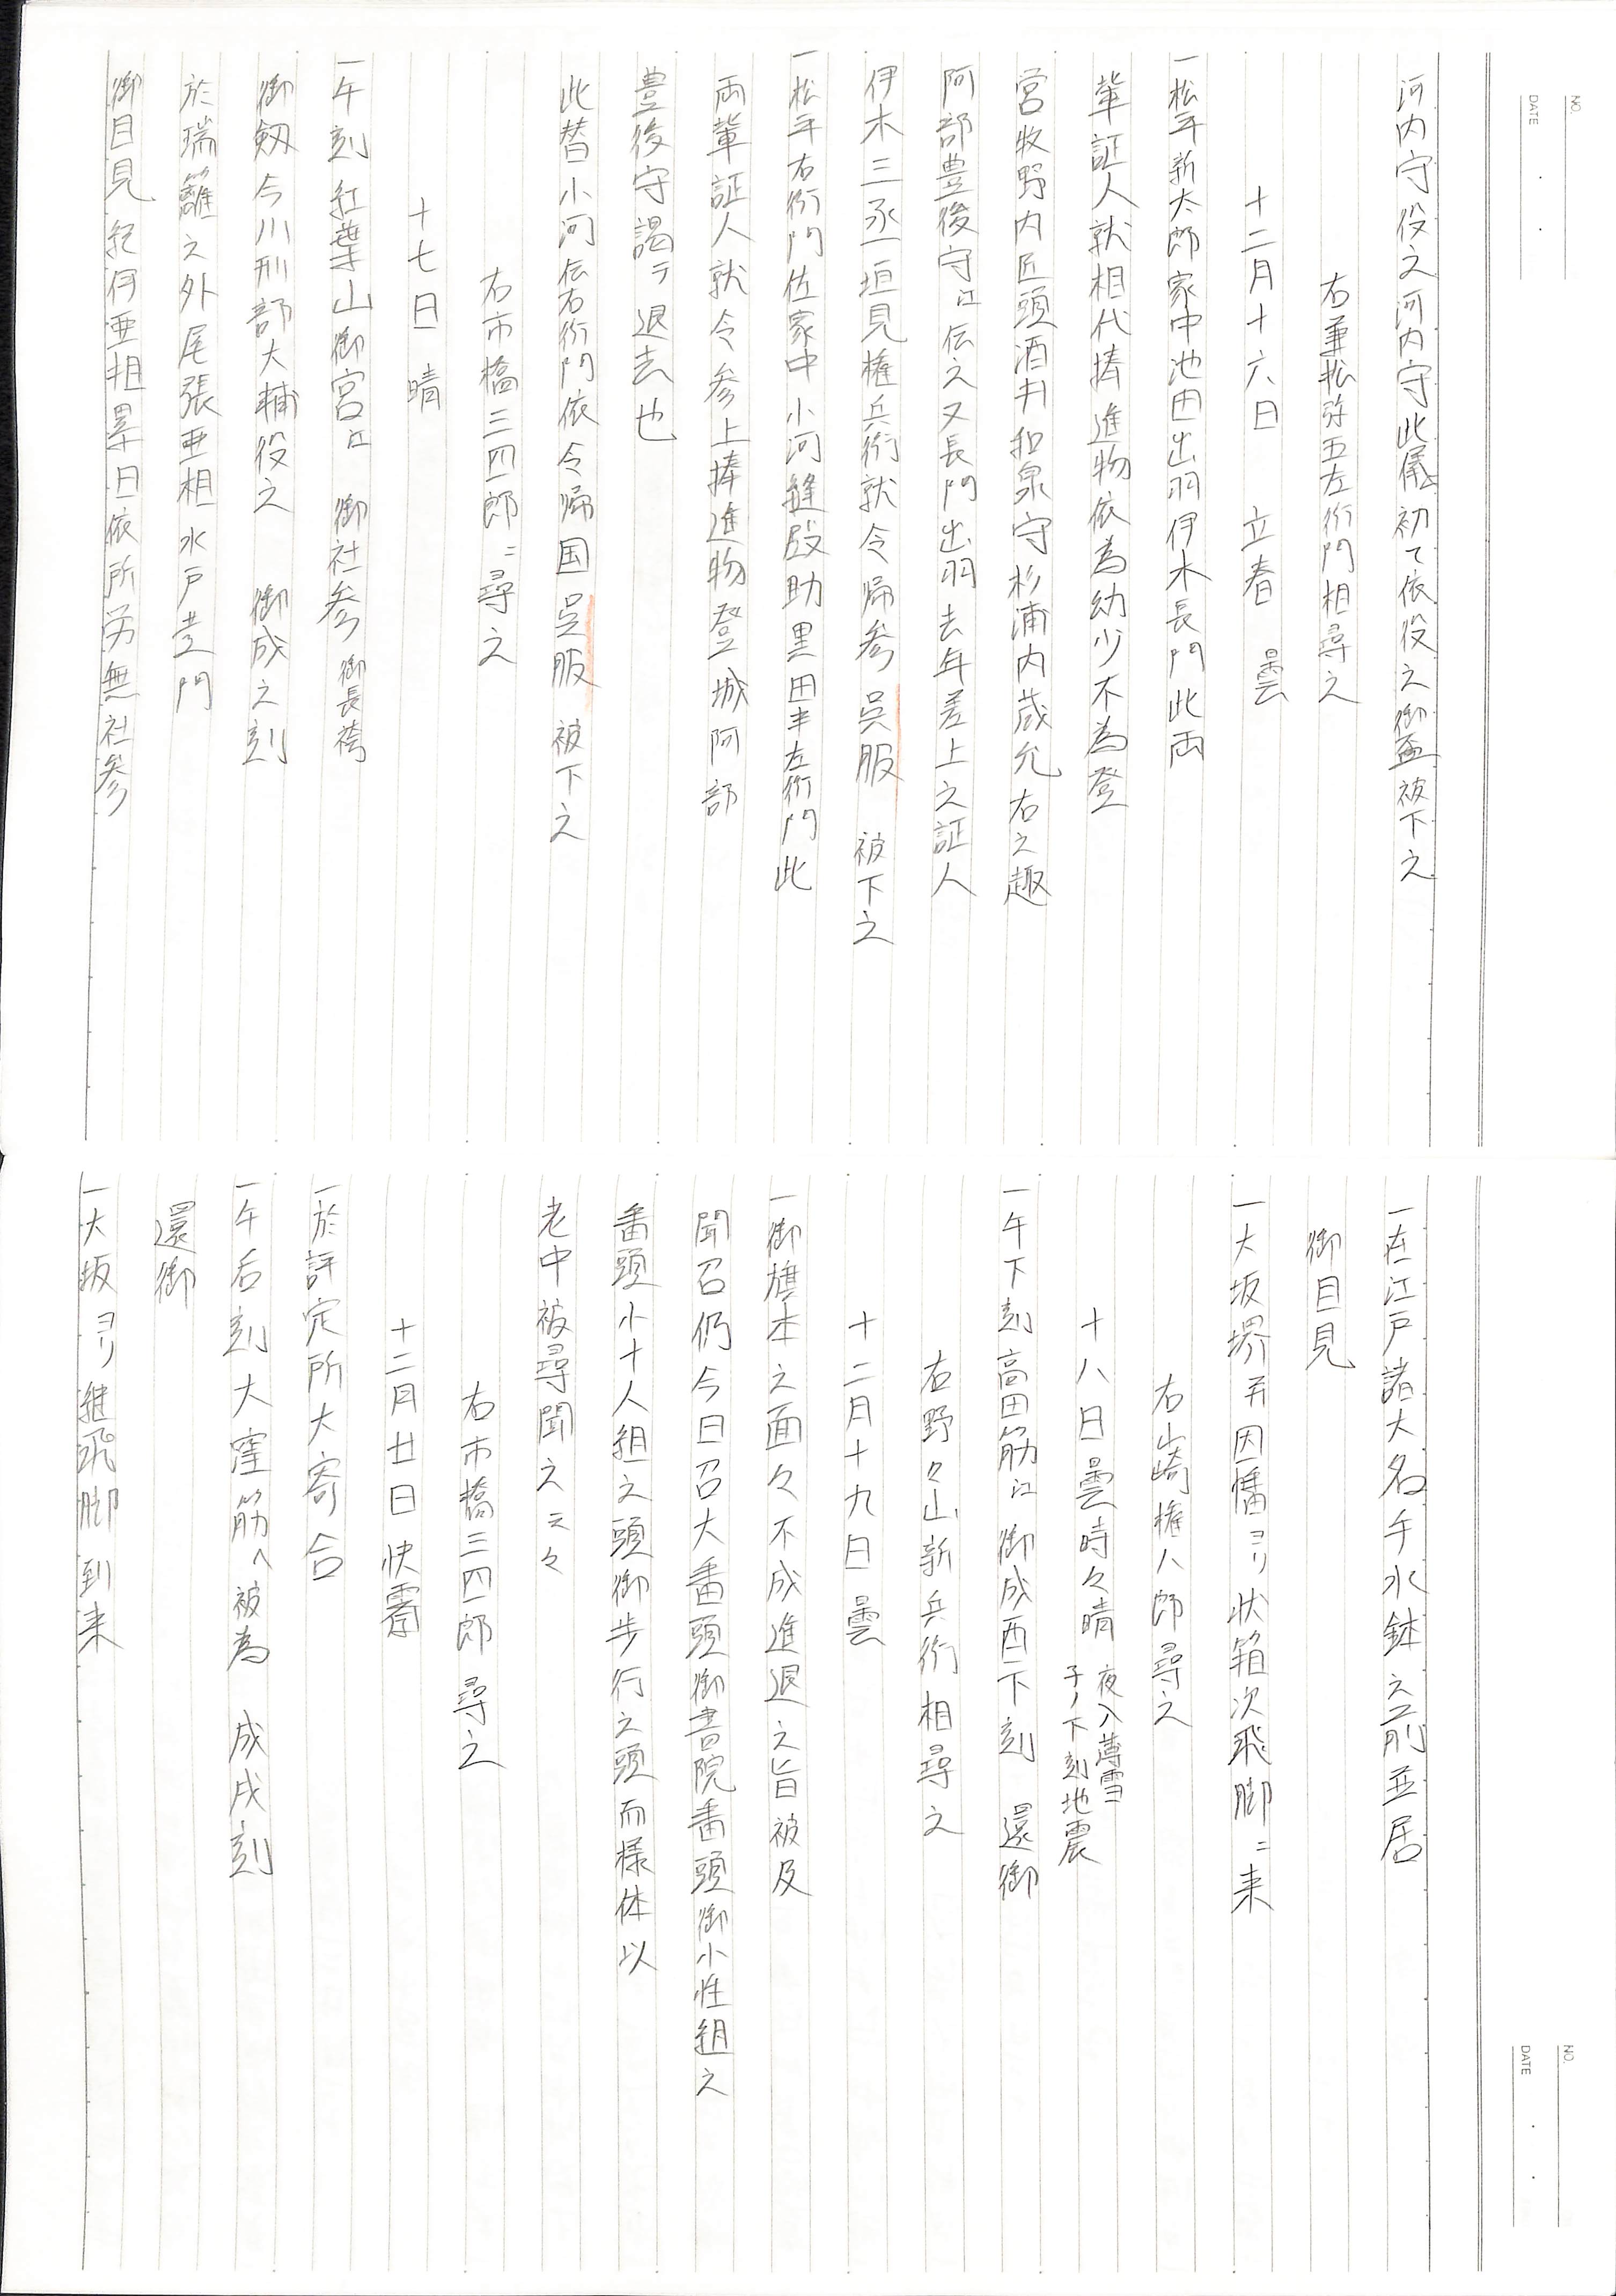 NO.
DATE
河内守役之河内守此儀初て依役之御盃被下之
右兼松弥五左衛門相尋之
十二月十六日　立春　曇
一松平新太郎家中池田出羽伊木長門此両
輩証人就相代捧進物依為幼少不為登
営牧野内匠頭酒井和泉守杉浦内蔵允右之趣
阿部豊後守江伝之又長門出羽去年差上之証人
伊木三丞垣見権兵衛就令帰参呉服　被下之
一松平右衛門佐家中小河縫殿助黒田半左衛門此
両輩証人就令参上捧進物登城阿部
豊後守謁テ退去也
此替小河伝右衛門依令帰国呉服　被下之
右市橋三四郎ニ尋之
十七日　晴
一午刻紅葉山御宮江　御社参御長袴
御剱今川刑部大輔役之　御成之刻
於瑞籬之外尾張亜相水戸黄門
御目見紀伊亜相累日依所労無社参
NO.
DATE
一在江戸諸大名手水鉢之前並居
御目見
一大坂堺并因幡ヨリ状箱次飛脚ニ来
右山崎権八郎尋之
十八日曇時々晴　夜入薄雪
子ノ下刻地震
一午下刻高田筋江　御成酉下刻　還御
右野々山新兵衛相尋之
十二月十九日曇
一御旗本之面々不成進退之旨被及
聞召仍今日召大番頭御書院番頭御小性組之
番頭小十人組之頭御歩行之頭而様体以
老中被尋聞之云々
右市橋三四郎　尋之
十二月廿日　快霽
一於評定所大寄合
一午后刻大窪筋へ被為　成戌刻
還御
一大坂ヨリ継飛脚到来